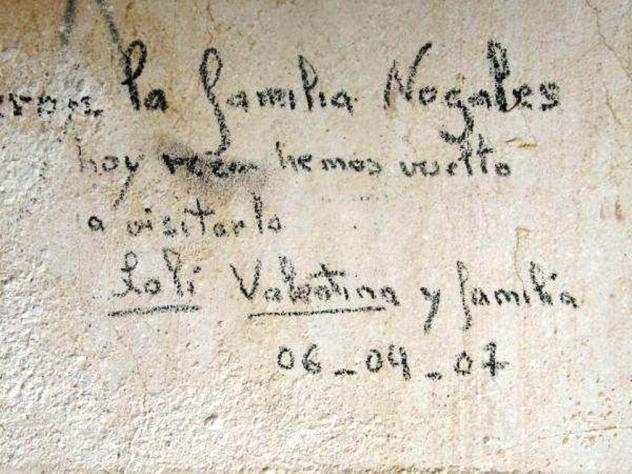 la familia Nogales
hoy hemos vuelto
a visitarlo
Loli Valentina y familia
06-04-07